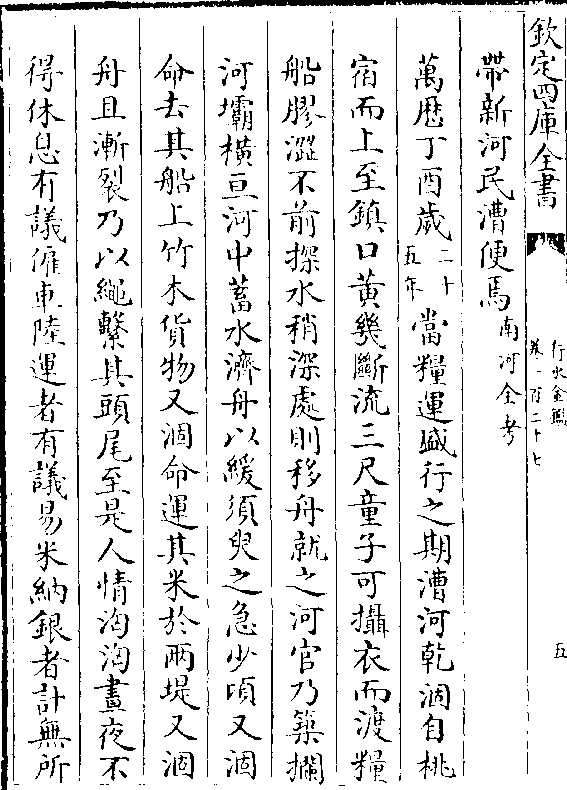 欽定四庫全書
行水金鑑
卷一百二十七
五
帶新河民漕便焉南河全考
萬歷丁酉歲二十五年當糧運盛行之期漕河乾涸自桃
宿而上至鎮口黃幾斷流三尺童子可攝衣而渡糧
船膠澀不前探水稍深處則移舟就之河官乃築攔
河壩橫亘河中蓄水濟舟以緩須臾之急少頃又涸
命去其船上竹木貨物又涸命運其米於兩堤又涸
舟且漸裂乃以繩繫其頭尾至是人情洶洶晝夜不
得休息有議僱車陸運者有議易米納銀者計無所